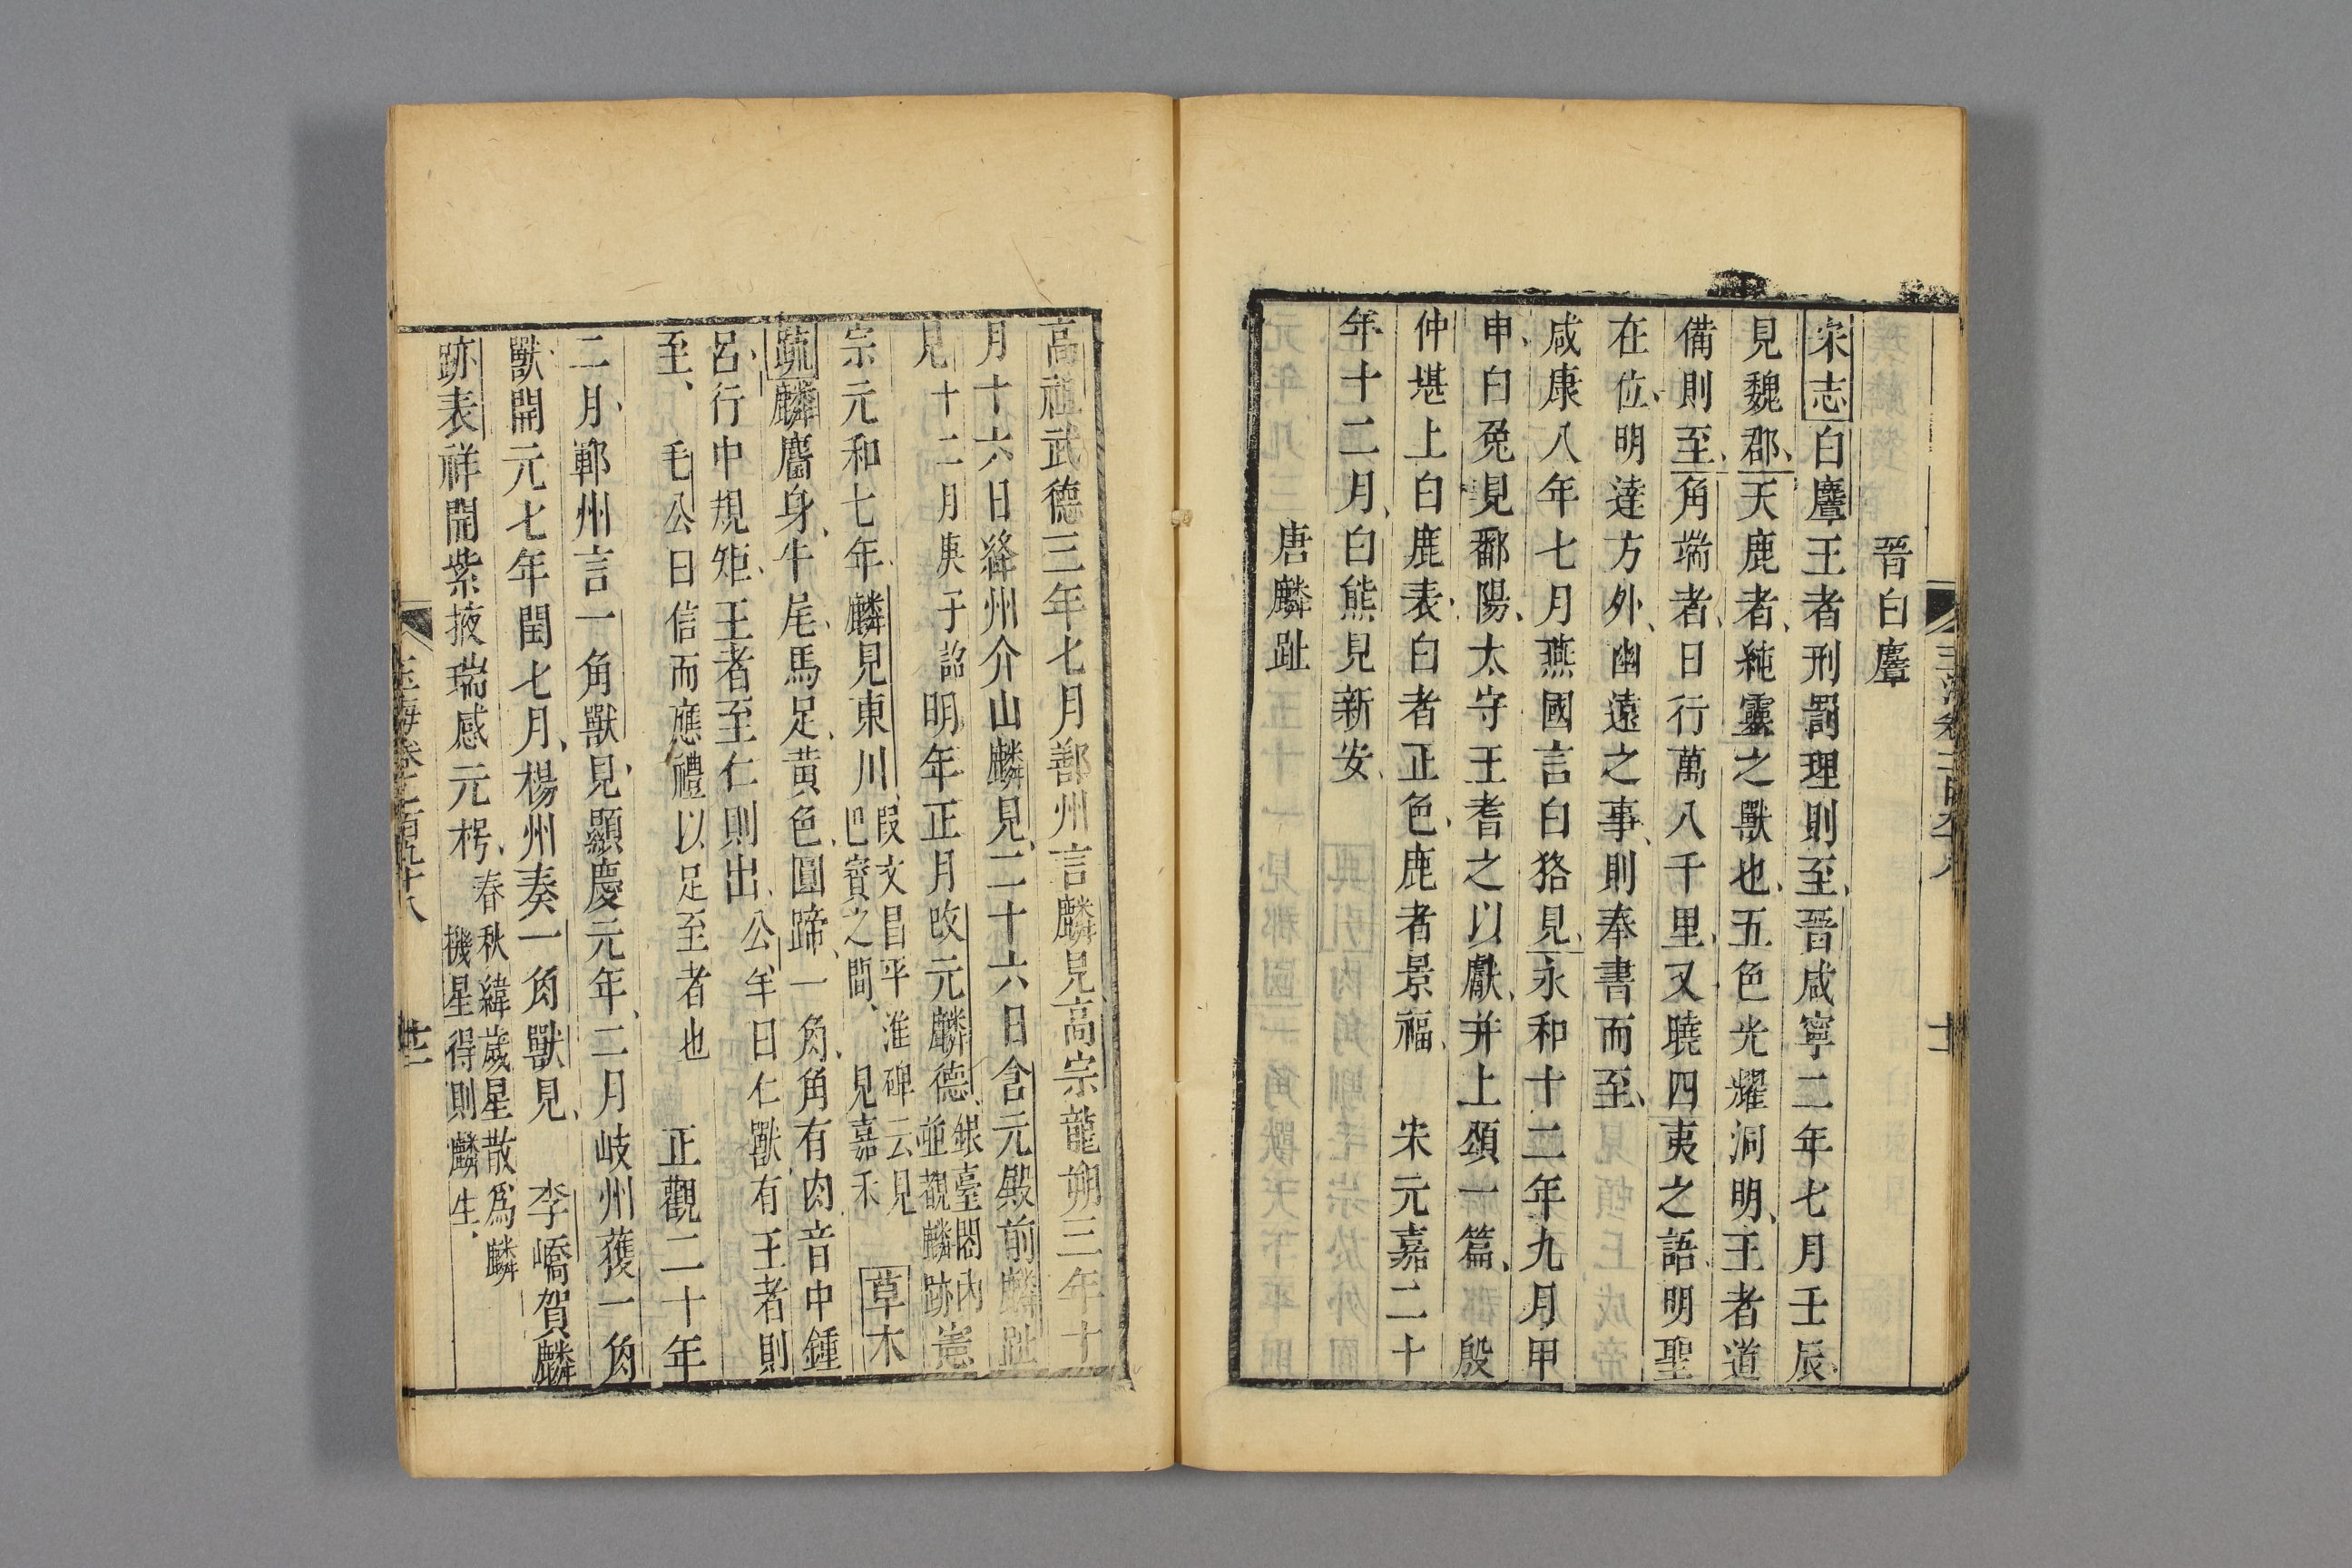 晉白麞
宋志白麞王者刑罰理則至晉咸寧二年七月壬辰
見魏郡天鹿者純靈之獸也五色光耀洞明王者道
備則至角端者日行萬八千里又曉四夷之語明聖
在位明達方外幽遠之事則奉書而至
咸康八年七月燕國言白狢見永和十二年九月甲
申白兔見鄱陽太守王耆之以獻并上頌一篇 殷
仲堪上白鹿表白者正色鹿者景福 宋元嘉二十
年十二月白熊見新安
唐麟趾
高祖武德三年七月鄯州言麟見高宗龍朔三年十
月十六日絳州介山麟見二十六日含元殿前麟趾
見十二月庚子詔明年正月改元麟德銀臺閣内並觀麟跡憲
宗元和七年麟見東川段文昌平淮碑云見巴賓之間見嘉禾草木
疏麟麕身牛尾馬足黃色圓蹄一角角有肉音中鍾
呂行中規矩王者至仁則出公羊曰仁獸有王者則
至毛公曰信而應禮以足至者也 正觀二十年
二月鄆州言一角獸見顯慶元年二月岐州獲一角
獸開元七年閏七月楊州奏一角獸見 李嶠賀麟
跡表祥開紫掖瑞感元枵春秋緯歲星散爲麟機星得則麟生